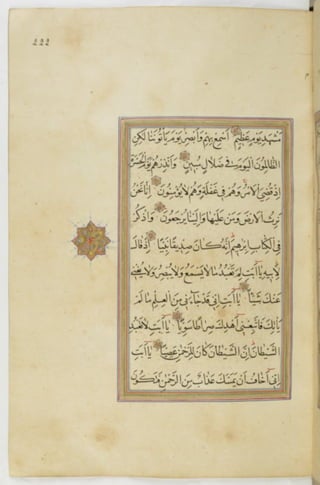 222
مَشْهَدِ يَوْمٍ عَظِيمٍ أَسْمِعْ بِهِمْ وَأَبْصِرْ يَوْمَ يَأْتُونَنَا لَكِنِ
الظَّالِمُونَ الْيَوْمَ فِي ضَلَالٍ مُبِينٍ وَأَنْذِرْهُمْ يَوْمَ الْحَسْرَةِ
إِذْ قُضِيَ الْأَمْرُ وَهُمْ فِي غَفْلَةٍ وَهُمْ لَا يُؤْمِنُونَ إِنَّا نَحْنُ
نَرِثُ الْأَرْضَ وَمَنْ عَلَيْهَا وَإِلَيْنَا يُرْجَعُونَ وَاذْكُرْ
فِي الْكِتَابِ إِبْرٰهِيمَ إِنَّهُ كَانَ صِدِّيقًا نَبِيًّا إِذْ قَالَ
لِأَبِيهِ يَا أَبَتِ لِمَ تَعْبُدُ مَا لَا يَسْمَعُ وَلَا يُبْصِرُ وَلَا يُغْنِي
عَنْكَ شَيْئًا يَا أَبَتِ إِنِّي قَدْ جَاءَنِي مِنَ الْعِلْمِ مَا لَمْ
يَأْتِكَ فَاتَّبِعْنِي أَهْدِكَ صِرَاطًا سَوِيًّا يَا أَبَتِ لَا تَعْبُدِ
الشَّيْطَانَ إِنَّ الشَّيْطَانَ كَانَ لِلرَّحْمٰنِ عَصِيًّا يَا أَبَتِ
إِنِّي أَخَافُ أَنْ يَمَسَّكَ عَذَابٌ مِنَ الرَّحْمٰنِ فَتَكُونَ